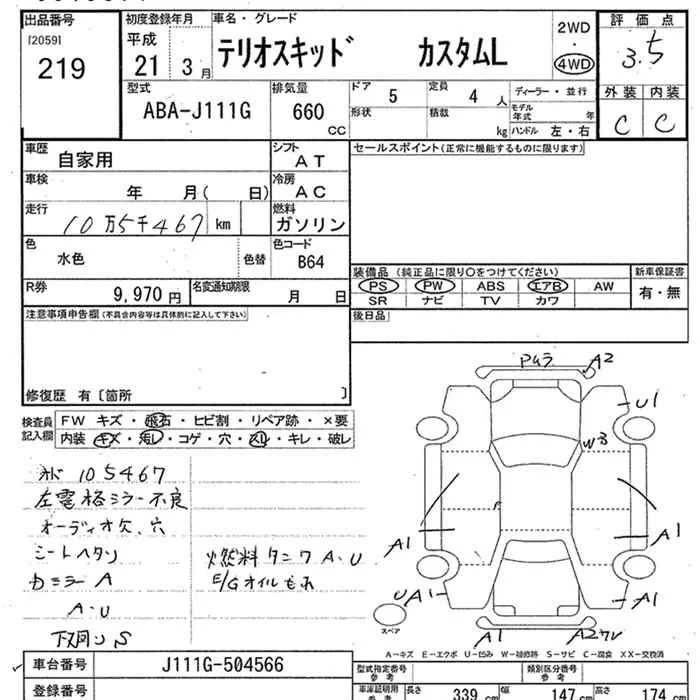 出品番号 初度登録年月 車名・グレード 評価点
[2059]
219
平成
21 3月
テリオスキッド カスタムL
2WD
4WD
3.5
型式 排気量 ドア 5 定員 4人 ディーラー・並行 外装 内装
ABA-J111G 660 cc
形状 積載 kg モデル年式 年
ハンドル 左・右
C C
車歴 自家用 シフト AT セールスポイント(正常に機能するものに限ります)
車検 年 月( 日) 冷房 AC
走行 10万5千467 km 燃料 ガソリン
色 水色 色替 色コード B64
装備品 (純正品に限り○をつけてください) 新車保証書
PS PW ABS エアB AW 有・無
SR ナビ TV カワ
R券 9,970円 名変通知期限 月 日
注意事項申告欄(不具合内容等は具体的に記入して下さい) 後日品
修復歴 有〔箇所 〕
検査員記入欄
FW キズ・飛石・ヒビ割・リペア跡・×要
内装 キズ・汚レ・コゲ・穴・スレ・キレ・破レ
105467
左電格ミラー不良
オーディオ欠、穴
シートヘタリ
A
A・U
下回り S
燃料タンク A、U
E/Gオイルもれ
Pムラ A2
U1
W3
A1 A1
UA1 A1
A1 A2
スペア
A-キズ E-エクボ U-凹み W-補修跡 S-サビ C-腐食 XX-交換済
車台番号 J111G-504566
型式指定番号 参考 類別区分番号 参考
登録番号
車庫証明用 参考 長さ 339 cm 幅 147 cm 高さ 174 cm